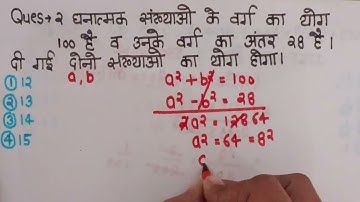 Ques→ 2 घनात्मक संख्याओ के वर्ग का योग
100 है व उनके वर्ग का अंतर 28 है।
दी गई दोनो संख्याओ का योग होगा।
① 12
② 13
③ 14
④ 15
a, b
a² + b² = 100
a² - b² = 28
2a² = 128 64
a² = 64 = 8²